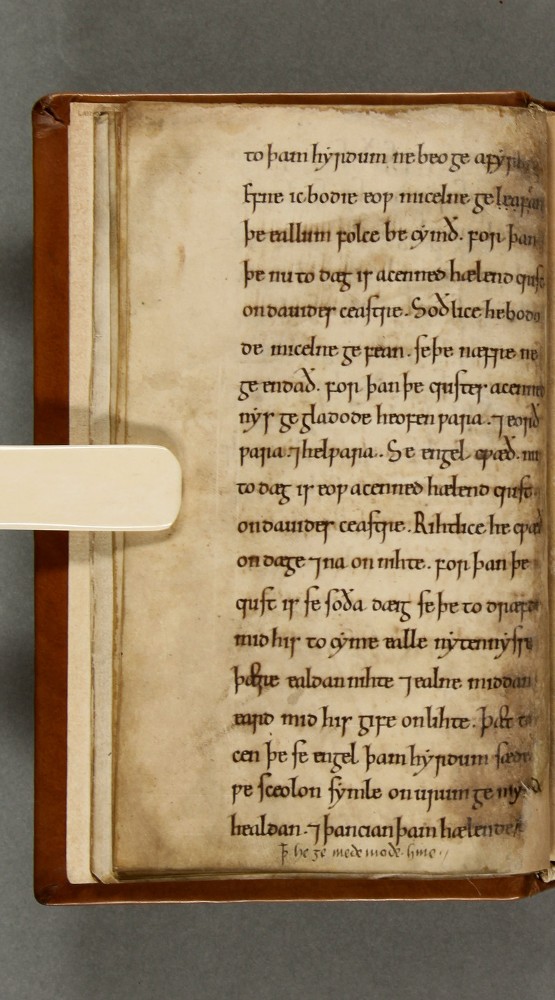 to þam hyrdum ne beo ge afyrh
efne ic bodie eop micelne gefean
þe eallum folce becymð. for þan
þe nu to dæg is acenned hælend crist
on dauides ceastre. Soðlice he bodo
de micelne gefean. se þe næfre ne
geendað. for þan þe cristes acenned
nys gegladode heofenpara. ⁊ eorð
para ⁊ helpara. Se engel cpæð. nu
to dæg is eop acenned hælend crist
on dauides ceastre. Rihtlice he cpæð
on dæge ⁊ na on nihte. for þan þe
crist is se soða dæig se þe to dræfde
mid his to cyme ealle nytennysse
þære ealdan nihte ⁊ ealne middan
eard mid his gife onlihte. þæt ta
cen þe se engel þam hyrdum sæde
pe sceolon symle on urum gemynd
healdan. ⁊ þancian þam hælende
þ he gemedemode hine